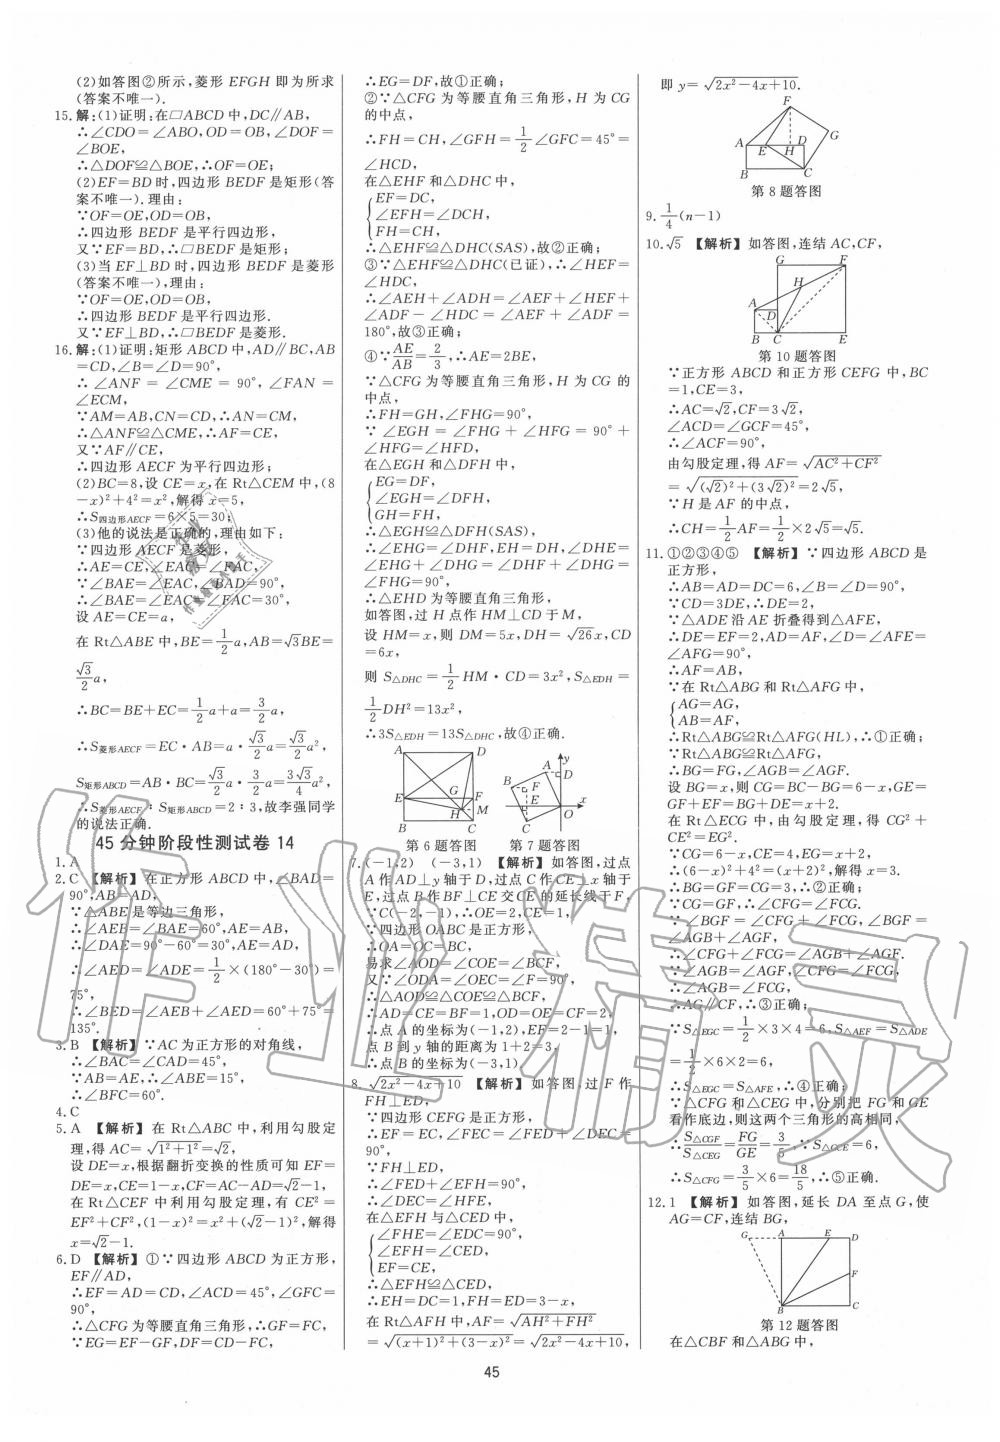 (2)如答图②所示,菱形 EFGH 即为所求
(答案不唯一).
15.解:(1)证明:在□ABCD 中,DC∥AB,
∴∠CDO=∠ABO,OD=OB,∠DOF=
∠BOE,
∴△DOF≌△BOE,∴OF=OE;
(2)EF=BD时,四边形 BEDF 是矩形(答
案不唯一).理由:
∵OF=OE,OD=OB,
∴四边形 BEDF 是平行四边形,
又∵EF=BD,∴□BEDF 是矩形;
(3)当 EF⊥BD 时,四边形 BEDF 是菱形
(答案不唯一),理由:
∵OF=OE,OD=OB,
∴四边形 BEDF 是平行四边形.
又∵EF⊥BD,∴□BEDF 是菱形.
16.解:(1)证明:矩形 ABCD 中,AD∥BC,AB
=CD,∠B=∠D=90°,
∴∠ANF=∠CME=90°,∠FAN=
∠ECM,
∵AM=AB,CN=CD,∴AN=CM,
∴△ANF≌△CME,∴AF=CE,
又∵AF∥CE,
∴四边形 AECF 为平行四边形;
(2)BC=8,设 CE=x,在 Rt△CEM 中,(8
-x)²+4²=x²,解得 x=5,
∴S四边形AECF=6×5=30;
(3)他的说法是正确的,理由如下:
∵四边形 AECF 是菱形,
∴AE=CE,∠EAC=∠FAC,
∵∠BAE=∠EAC,∠BAD=90°,
∴∠BAE=∠EAC=∠FAC=30°,
设 AE=CE=a,
在 Rt△ABE 中,BE=1/2a,AB=√3BE=
√3/2a,
∴BC=BE+EC=1/2a+a=3/2a,
∴S菱形AECF=EC·AB=a·√3/2a=√3/2a²,
S矩形ABCD=AB·BC=√3/2a·3/2a=3√3/4a²
∴S菱形AECF:S矩形ABCD=2:3,故李强同学
的说法正确.
45分钟阶段性测试卷 14
1.A
2.C 【解析】在正方形 ABCD 中,∠BAD=
90°,AB=AD,
∵△ABE 是等边三角形,
∴∠AEB=∠BAE=60°,AE=AB,
∴∠DAE=90°-60°=30°,AE=AD,
∴∠AED=∠ADE=1/2×(180°-30°)=
75°,
∴∠BED=∠AEB+∠AED=60°+75°=
135°.
3.B 【解析】∵AC 为正方形的对角线,
∴∠BAC=∠CAD=45°,
∵AB=AE,∴∠ABE=∠AEB,
∴∠BFC=60°.
4.C
5.A 【解析】在 Rt△ABC 中,利用勾股定
理,得 AC=√1²+1²=√2,
设 DE=x,根据翻折变换的性质可知 EF=
DE=x,CE=1-x,CF=AC-AD=√2-1,
在 Rt△CEF 中利用勾股定理,有 CE²=
EF²+CF²,(1-x)²=x²+(√2-1)²,解得
x=√2-1.
6.D 【解析】①∵四边形 ABCD 为正方形,
EF∥AD,
∴EF=AD=CD,∠ACD=45°,∠GFC=
90°,
∴△CFG 为等腰直角三角形,∴GF=FC,
∵EG=EF-GF,DF=CD-FC,
∴EG=DF,故①正确;
②∵△CFG 为等腰直角三角形,H 为 CG
的中点,
∴FH=CH,∠GFH=1/2∠GFC=45°=
∠HCD,
在△EHF 和△DHC 中,
EF=DC,
∠EFH=∠DCH,
FH=CH,
∴△EHF≌△DHC(SAS),故②正确;
③∵△EHF≌△DHC(已证),∴∠HEF=
∠HDC,
∴∠AEH+∠ADH=∠AEF+∠HEF+
∠ADF-∠HDC=∠AEF+∠ADF=
180°,故③正确;
④∵AE/AB=2/3,∴AE=2BE,
∵△CFG 为等腰直角三角形,H 为 CG 的
中点,
∴FH=GH,∠FHG=90°,
∵∠EGH=∠FHG+∠HFG=90°+
∠HFG=∠HFD,
在△EGH 和△DFH 中,
EG=DF,
∠EGH=∠DFH,
GH=FH,
∴△EGH≌△DFH(SAS),
∴∠EHG=∠DHF,EH=DH,∠DHE=
∠EHG+∠DHG=∠DHF+∠DHG=
∠FHG=90°,
∴△EHD 为等腰直角三角形,
如答图,过 H 点作 HM⊥CD 于 M,
设 HM=x,则 DM=5x,DH=√26x,CD
=6x,
则 S△DHC=1/2HM·CD=3x²,S△EDH=
1/2DH²=13x²,
∴3S△EDH=13S△DHC,故④正确.
A D E G F H M B C
A y D B F E O x C
第6题答图 第7题答图
7.(-1,2) (-3,1) 【解析】如答图,过点
A 作 AD⊥y 轴于 D,过点 C 作 CE⊥x 轴于
E,过点 B 作 BF⊥CE 交 CE 的延长线于 F,
∵C(-2,-1),∴OE=2,CE=1,
∵四边形 OABC 是正方形,
∴OA=OC=BC,
易求∠AOD=∠COE=∠BCF,
又∵∠ODA=∠OEC=∠F=90°,
∴△AOD≌△COE≌△BCF,
∴AD=CE=BF=1,OD=OE=CF=2,
∴点 A 的坐标为(-1,2),EF=2-1=1,
点 B 到 y 轴的距离为 1+2=3,
∴点 B 的坐标为(-3,1).
8.√2x²-4x+10 【解析】如答图,过 F 作
FH⊥ED,
∵四边形 CEFG 是正方形,
∴EF=EC,∠FEC=∠FED+∠DEC=
90°,
∵FH⊥ED,
∴∠FED+∠EFH=90°,
∴∠DEC=∠HFE,
在△EFH 与△CED 中,
∠FHE=∠EDC=90°,
∠EFH=∠CED,
EF=CE,
∴△EFH≌△CED,
∴EH=DC=1,FH=ED=3-x,
在 Rt△AFH 中,AF=√AH²+FH²
=√(x+1)²+(3-x)²=√2x²-4x+10,
即 y=√2x²-4x+10.
F G A E H D B C
第8题答图
9.1/4(n-1)
10.√5 【解析】如答图,连结 AC,CF,
G F H A D B C E
第10题答图
∵正方形 ABCD 和正方形 CEFG 中,BC
=1,CE=3,
∴AC=√2,CF=3√2,
∠ACD=∠GCF=45°,
∴∠ACF=90°,
由勾股定理,得 AF=√AC²+CF²
=√(√2)²+(3√2)²=2√5,
∵H 是 AF 的中点,
∴CH=1/2AF=1/2×2√5=√5.
11.①②③④⑤ 【解析】∵四边形 ABCD 是
正方形,
∴AB=AD=DC=6,∠B=∠D=90°,
∵CD=3DE,∴DE=2,
∵△ADE 沿 AE 折叠得到△AFE,
∴DE=EF=2,AD=AF,∠D=∠AFE=
∠AFG=90°,
∴AF=AB,
∵在 Rt△ABG 和 Rt△AFG 中,
AG=AG,
AB=AF,
∴Rt△ABG≌Rt△AFG(HL),∴①正确;
∵Rt△ABG≌Rt△AFG,
∴BG=FG,∠AGB=∠AGF.
设 BG=x,则 CG=BC-BG=6-x,GE=
GF+EF=BG+DE=x+2.
在 Rt△ECG 中,由勾股定理,得 CG²+
CE²=EG².
∵CG=6-x,CE=4,EG=x+2,
∴(6-x)²+4²=(x+2)²,解得 x=3.
∴BG=GF=CG=3,∴②正确;
∵CG=GF,∴∠CFG=∠FCG.
∵∠BGF=∠CFG+∠FCG,∠BGF=
∠AGB+∠AGF,
∴∠CFG+∠FCG=∠AGB+∠AGF.
∵∠AGB=∠AGF,∠CFG=∠FCG,
∴∠AGB=∠FCG,
∴AG∥CF,∴③正确;
∵S△EGC=1/2×3×4=6,S△AEF=S△ADE
=1/2×6×2=6,
∴S△EGC=S△AFE,∴④正确;
∵△CFG 和△CEG 中,分别把 FG 和 GE
看作底边,则这两个三角形的高相同,
∴S△CGF/S△CEG=FG/GE=3/5,∵S△GCE=6,
∴S△CFG=3/5×6=18/5,∴⑤正确.
12.1 【解析】如答图,延长 DA 至点 G,使
AG=CF,连结 BG,
G A E D F B C
第12题答图
在△CBF 和△ABG 中,
45
作业精灵